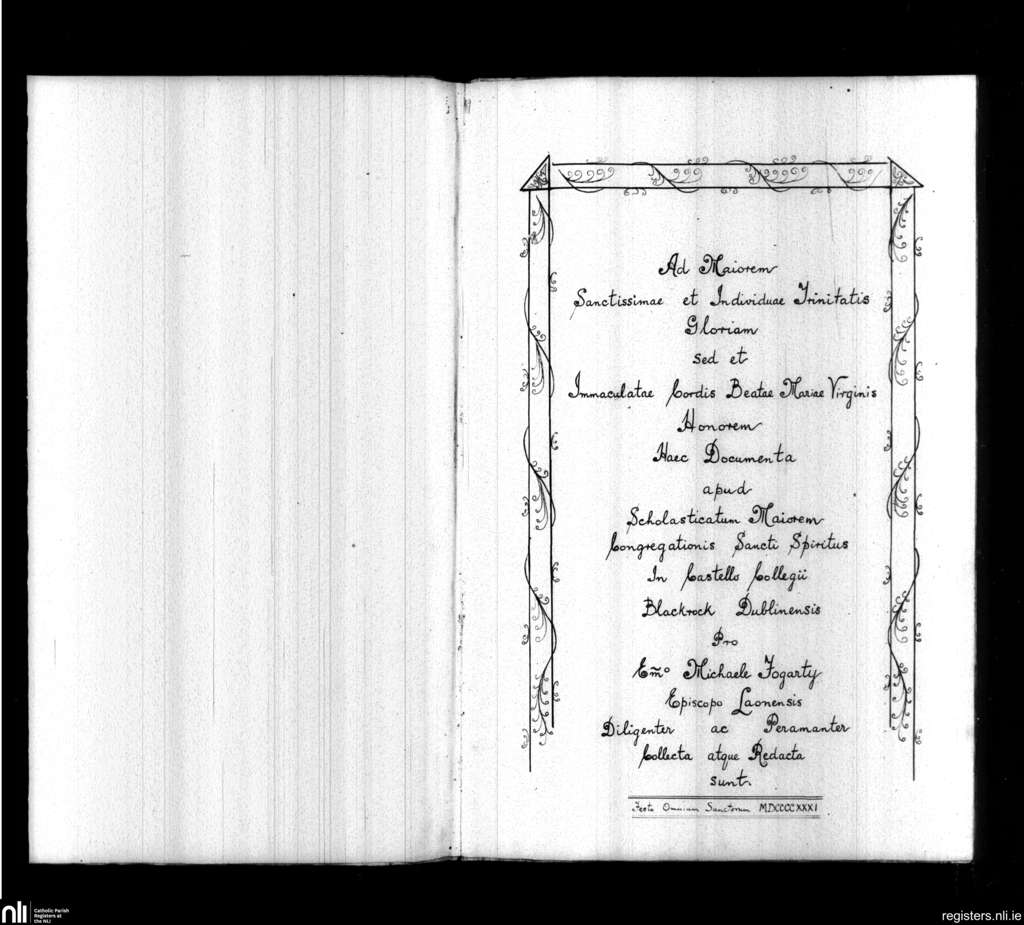 Ad Maiorem
Sanctissimae et Individuae Trinitatis
Gloriam
sed et
Immaculatae Cordis Beatae Mariae Virginis
Honorem
Haec Documenta
apud
Scholasticatum Maiorem
Congregationis Sancti Spiritus
In Castello Collegii
Blackrock Dublinensis
Pro
Em̃o Michaele Fogarty
Episcopo Laonensis
Diligenter ac Peramanter
Collecta atque Redacta
sunt.
Festo Omnium Sanctorum MDCCCCXXXI
nli
Catholic Parish
Registers at
the NLI
registers.nli.ie